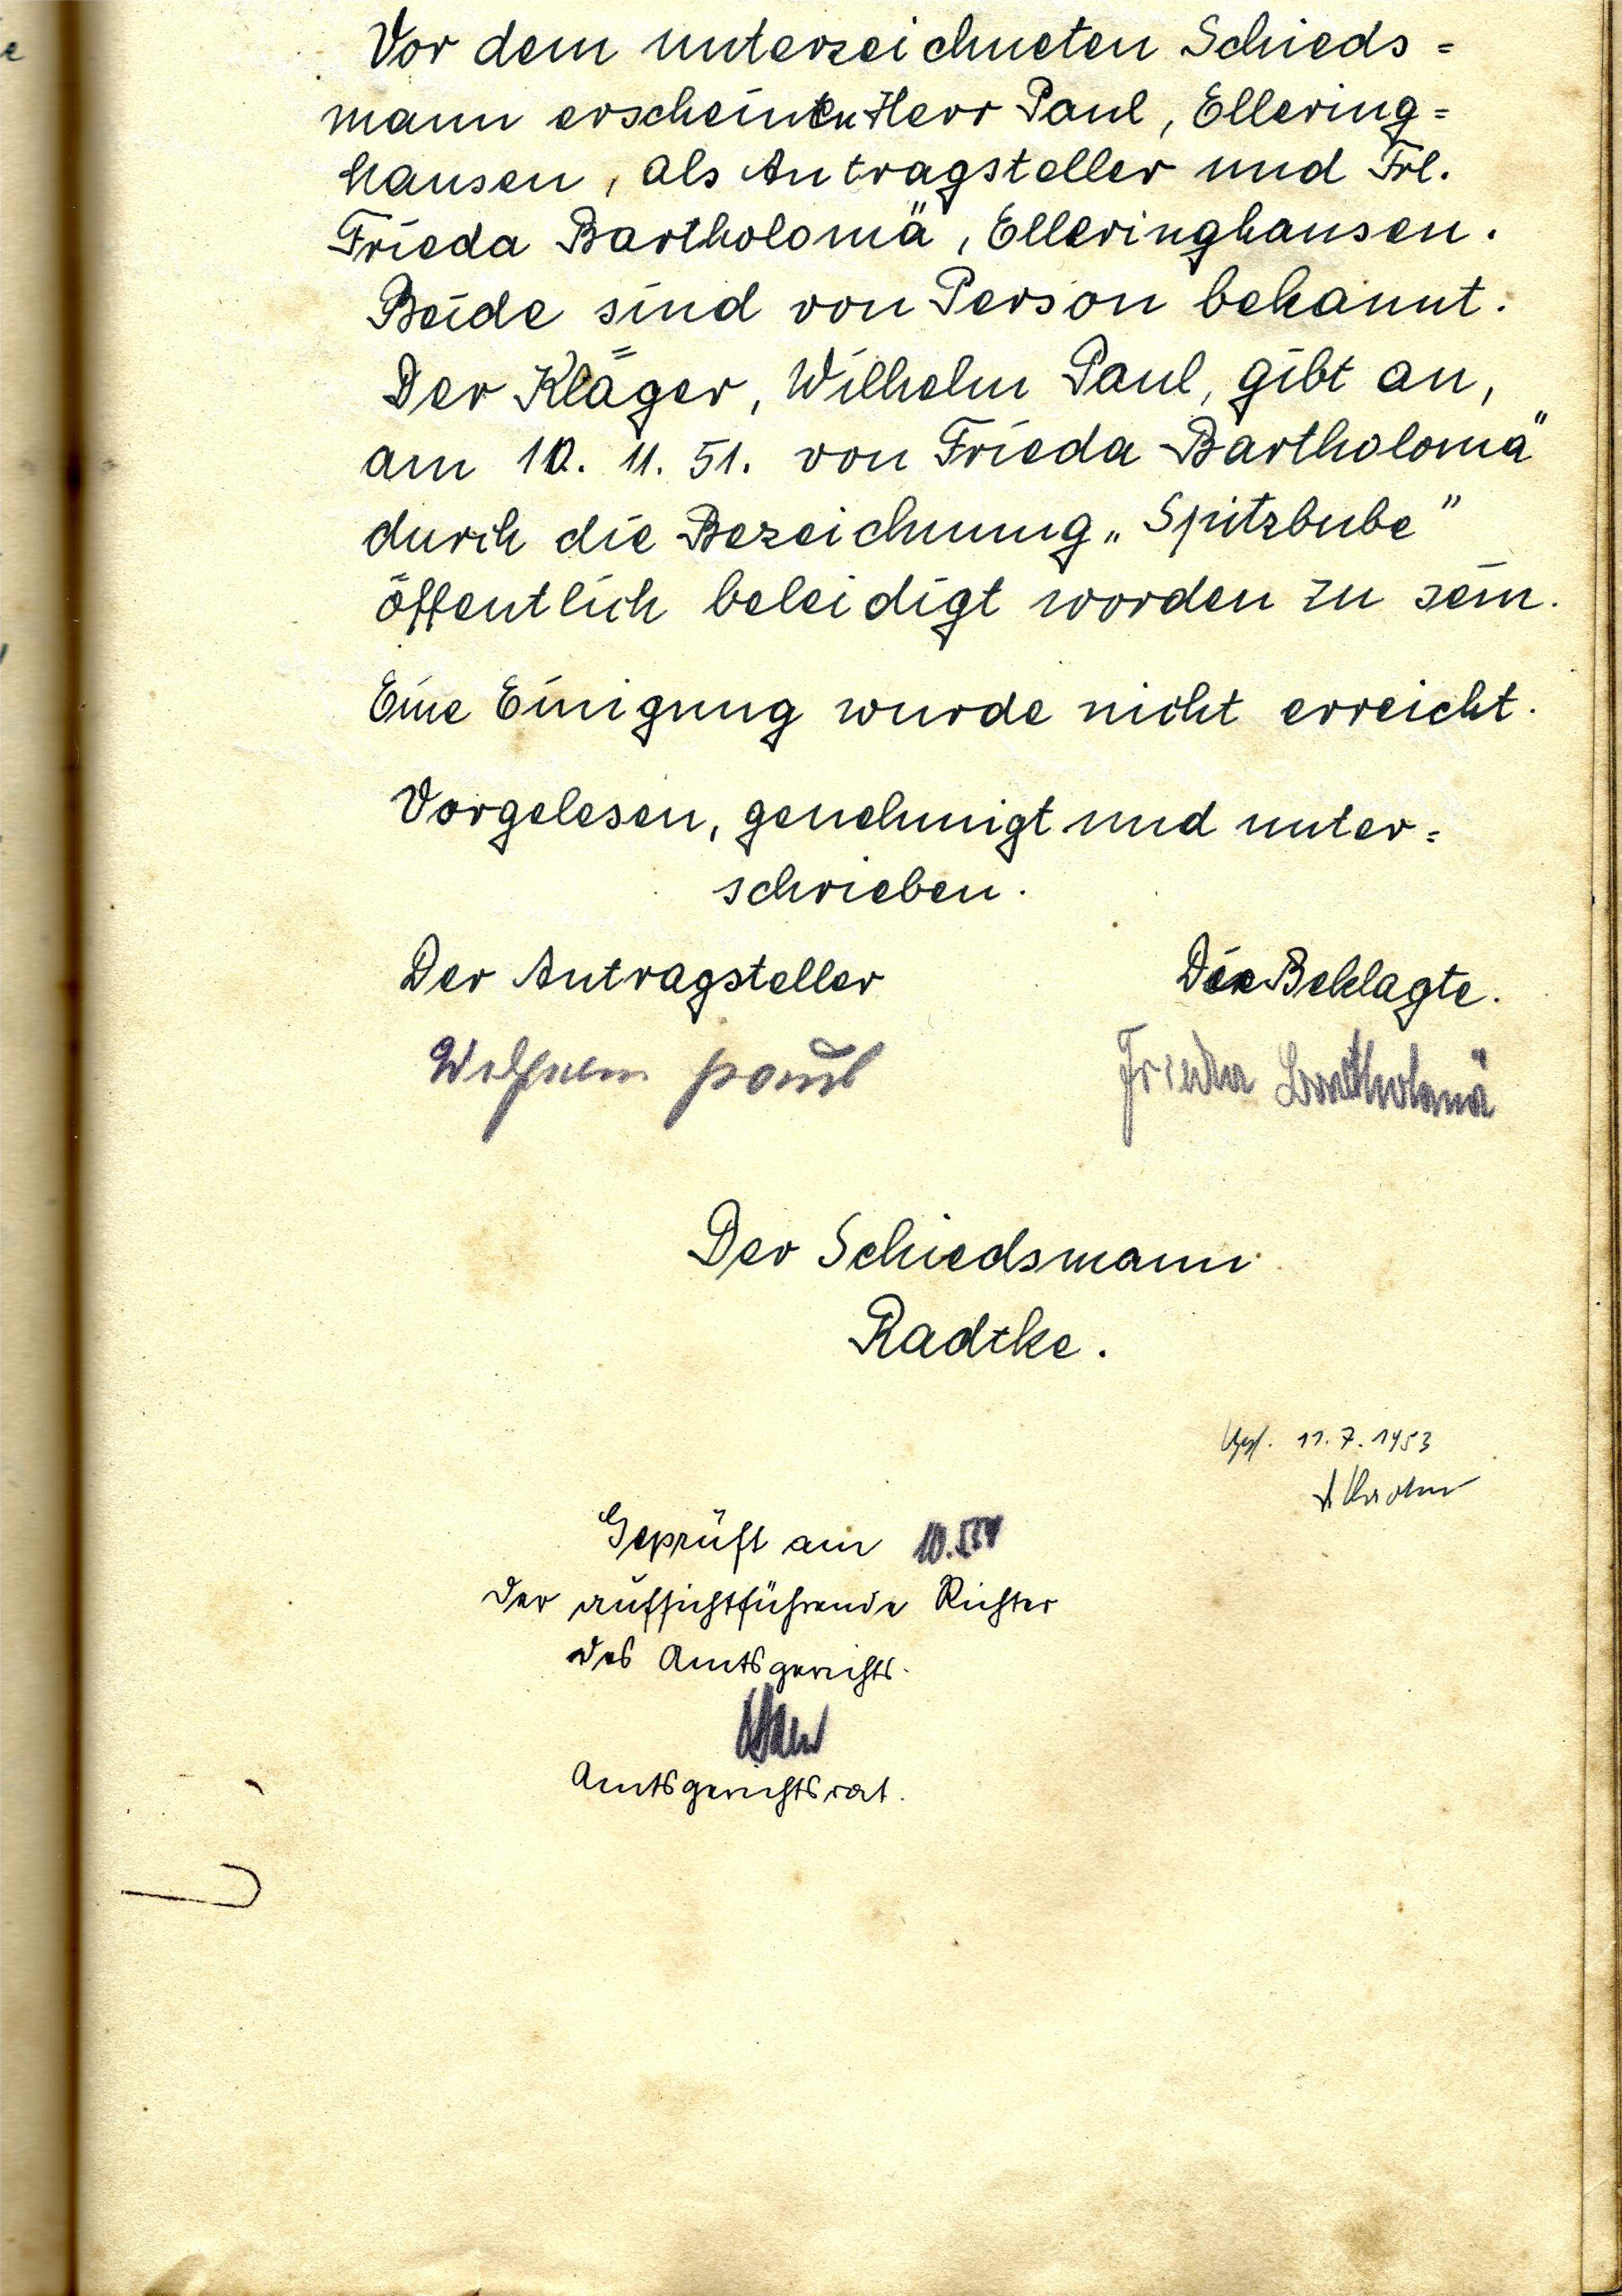 Vor dem unterzeichneten Schieds=
mann erscheinen Herr Paul, Ellering=
hausen, als Antragsteller und Frl.
Frieda Bartholomä, Elleringhausen.
Beide sind von Person bekannt.
Der Kläger, Wilhelm Paul, gibt an,
am 10. 11. 51. von Frieda Bartholomä
durch die Bezeichnung „Spitzbube"
öffentlich beleidigt worden zu sein.
Eine Einigung wurde nicht erreicht.
Vorgelesen, genehmigt und unter=
schrieben.
Der Antragsteller
Die Beklagte.
Wilhelm Paul
Frieda Bartholomä
Der Schiedsmann
Radtke.
11. 7. 1953
Geprüft am 10.
der aufsichtführende Richter
des Amtsgerichts.
Amtsgerichtsrat.